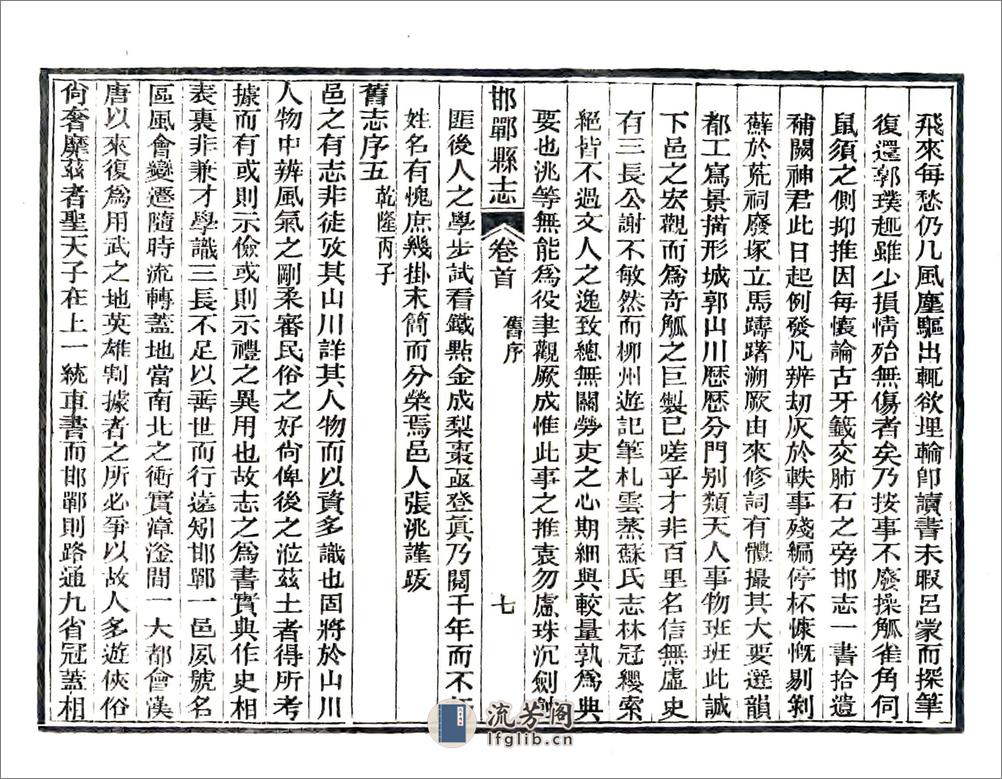 飛來每愁仍几風塵驅出輒欲埋輪卽讀書未暇呂蒙而探筆
復還郭璞趣雖少損情殆無傷者矣乃按事不廢操觚雀角伺
鼠須之側抑推因每懷論古牙籤交肺石之旁邯志一書拾遺
補闕神君此日起例發凡辨刧灰於軼事殘編停杯慷慨剔剝
蘚於荒祠廢塚立馬躊躇溯厥由來修詞有體撮其大要選韻
都工寫景描形城郭山川歷歷分門別類天人事物班班此誠
下邑之宏觀而爲奇觚之巨製已嗟乎才非百里名信無虛史
有三長公謝不敏然而柳州遊記筆札雲蒸蘇氏志林冠纓索
絕皆不過文人之逸致總無關勞吏之心期細與較量孰爲典
要也洮等無能爲役聿觀厥成惟此事之推袁勿慮珠沉劍
邯鄲縣志
卷首
舊序
七
匪後人之學步試看鐵點金成梨棗亟登眞乃閱千年而不
姓名有愧庶幾掛末簡而分榮焉邑人張洮謹跋
舊志序五 乾隆丙子
邑之有志非徒攷其山川詳其人物而以資多識也固將於山川
人物中辨風氣之剛柔審民俗之好尙俾後之涖茲土者得所考
據而有或則示儉或則示禮之異用也故志之爲書實與作史相
表裏非兼才學識三長不足以善世而行遠矧邯鄲一邑夙號名
區風會變遷隨時流轉蓋地當南北之衝實漳滏間一大都會漢
唐以來復爲用武之地英雄割據者之所必爭以故人多遊俠俗
尙奢靡茲者聖天子在上一統車書而邯鄲則路通九省冠蓋相
流芳阁
lfglib.cn